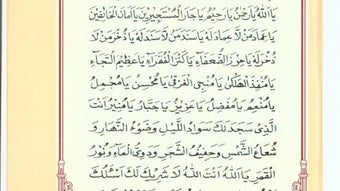 يَا اَللّٰهُ يَا رَحْمٰنُ يَا رَحِيْمُ يَا جَارَ الْمُسْتَجِيْرِيْنَ يَا اَمَانَ الْخَائِفِيْنَ
يَا عِمَادَ مَنْ لَا عِمَادَ لَهُ يَا سَنَدَ مَنْ لَا سَنَدَ لَهُ يَا ذُخْرَ مَنْ لَا
ذُخْرَ لَهُ يَا حِرْزَ الضُّعَفَاءِ يَا كَنْزَ الْفُقَرَاءِ يَا عَظِيْمَ الرَّجَاءِ
يَا مُنْقِذَ الْهَلْكٰى يَا مُنْجِيَ الْغَرْقٰى يَا مُحْسِنُ يَا مُجْمِلُ
يَا مُنْعِمُ يَا مُفْضِلُ يَا عَزِيْزُ يَا جَبَّارُ يَا مُنِيْرُ اَنْتَ
الَّذِيْ سَجَدَ لَكَ سَوَادُ اللَّيْلِ وَضَوْءُ النَّهَارِ وَ
شُعَاعُ الشَّمْسِ وَحَفِيْفُ الشَّجَرِ وَدَوِيُّ الْمَاءِ وَنُوْرُ
الْقَمَرِ يَا اَللّٰهُ اَنْتَ اللّٰهُ لَا شَرِيْكَ لَكَ اَسْئَلُكَ